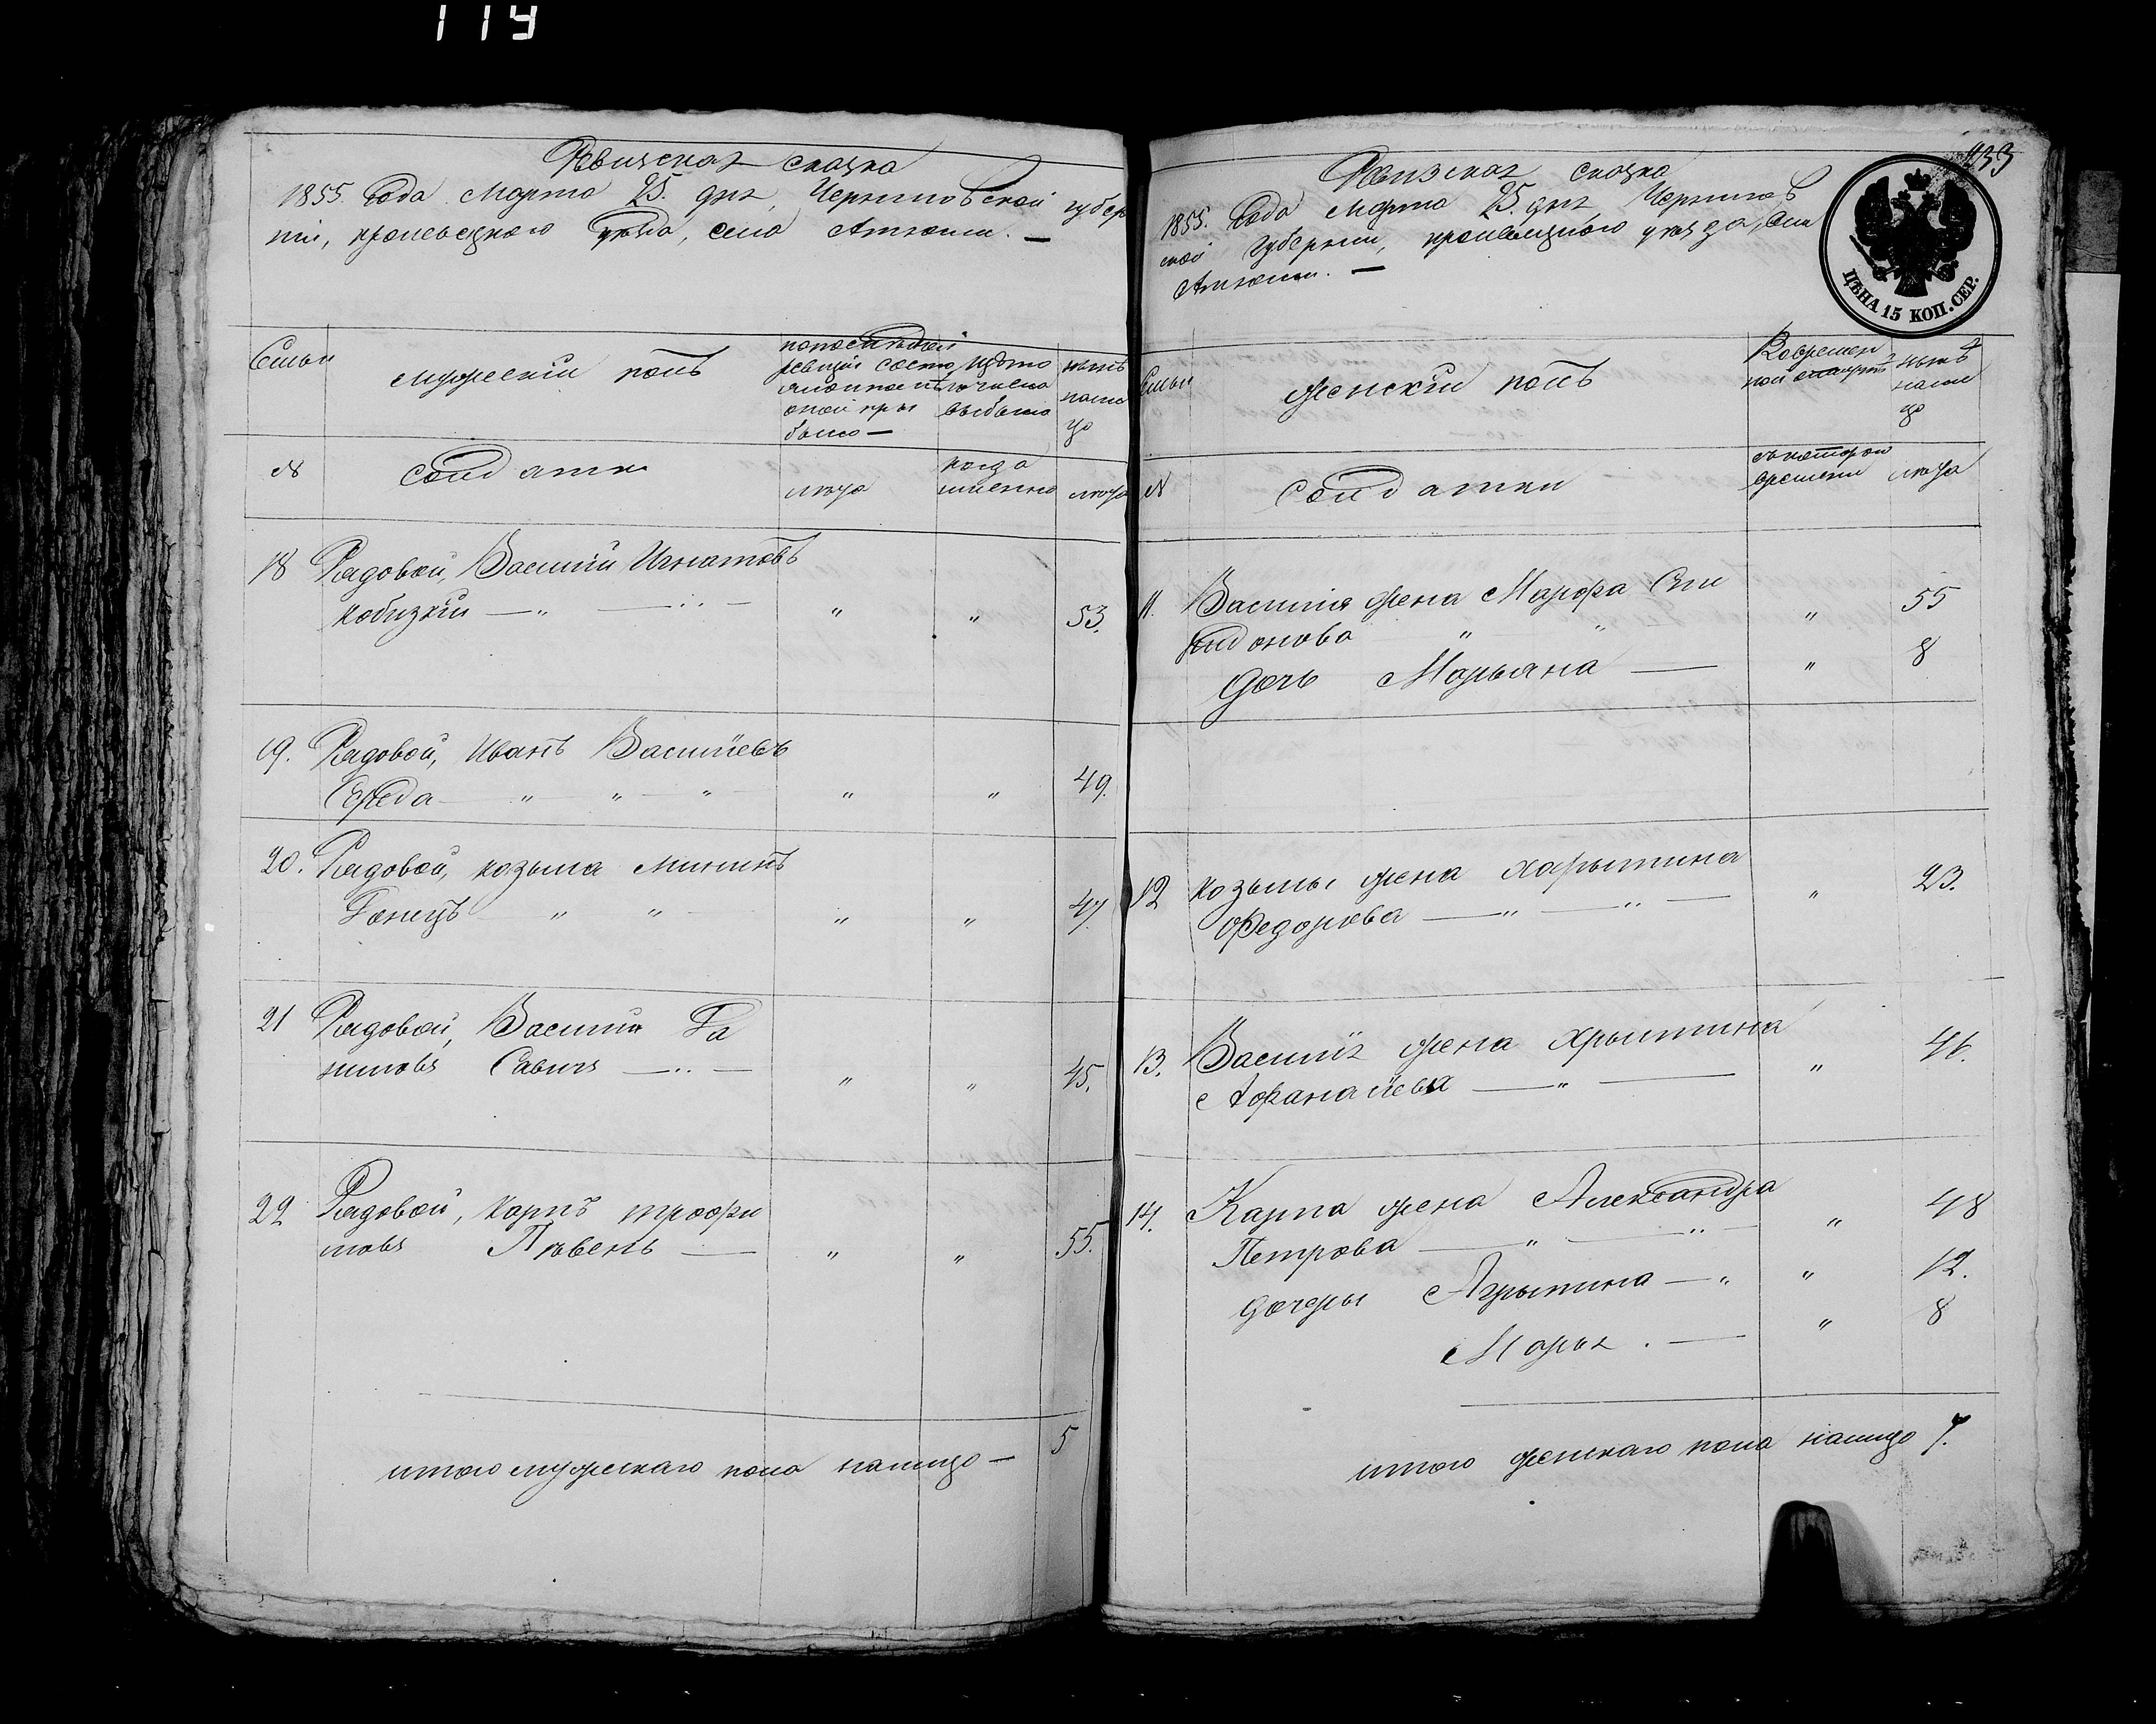 119
Ревизская сказка
1855. Года Марта 25. дня, Черниговской губер
ніи, кролевецкого уезда, села Атюши. —
Семьи
мужескій полъ
попоследней
ревизіи состо
яло и после
оной при
было —
Изъто
го числа
выбыло
ныне
нали
цо
№
Солдатки
лета
когда
именно
лета
18 Рядовой, Василий Игнатовъ
Кобизкій — „ — „ — „ „ 53.
19. Рядовой, Иванъ Василіевъ
Середа — „ „ „ „ „ 49.
20. Рядовой, козьма Мининъ
Гонецъ „ „ „ „ 47.
21 Рядовой, Василий Да
ниловъ Савичъ — „ — „ „ 45.
22 Рядовой, карпъ трофи
мовъ Пѣвень — „ „ 55.
итого мужескаго пола налицо — 5
233
Ревизская сказка
1855. Года Марта 25. дня Чернигов
ской Губерніи, кролевецкого уезда, села
Атюши. —
ЦѢНА 15 КОП. СЕР.
Семьи
женскій полъ
Вовремен
ной отлучке
ныне
нали
цо
№
Солдатки
съ которого
времени
лета
11. Василия жена Марфа Спи
ридонова „ „ „ 55
дочь Марьяна — „ 8
12 козьмы жена харытина
Федорова — „ — „ — „ 23.
13. Василия жена Хрыстина
Афанасіева — „ — „ 46.
14. Карпа жена Александра
Петрова — „ — „ — „ 48
дочеры Агрыпина — „ „ 12.
Марья. — „ 8
итого женскаго пола налицо 7.